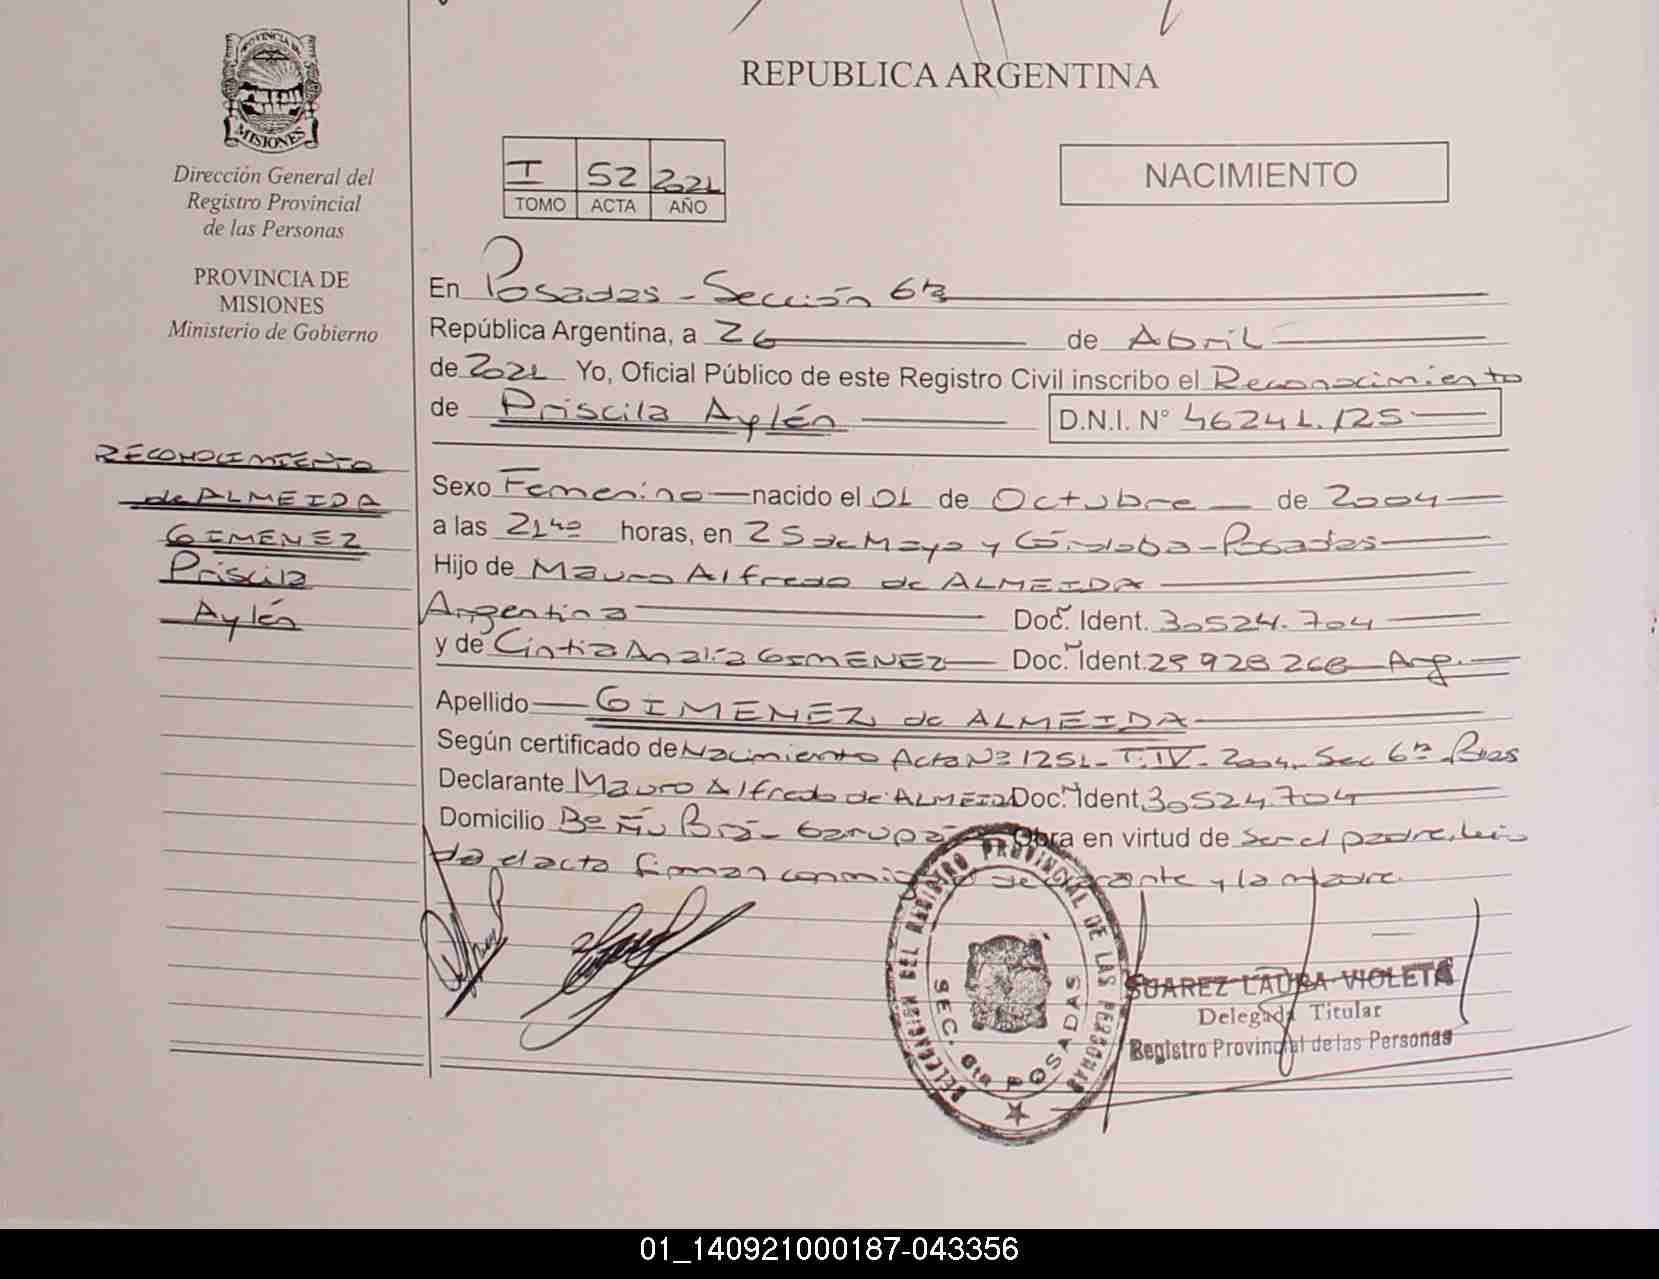 REPUBLICA ARGENTINA
PROVINCIA DE
MISIONES
Dirección General del
Registro Provincial
de las Personas
PROVINCIA DE
MISIONES
Ministerio de Gobierno
I 52 2021
TOMO ACTA AÑO
NACIMIENTO
RECONOCIMIENTO
de ALMEIDA
GIMENEZ
Priscila
Aylén
En Posadas - Sección 6ta
República Argentina, a 26 de Abril
de 2021 Yo, Oficial Público de este Registro Civil inscribo el Reconocimiento
de Priscila Aylén D.N.I. N° 46241.125
Sexo Femenino nacido el 01 de Octubre de 2004
a las 2140 horas, en 25 de Mayo y Córdoba - Posadas
Hijo de Mauro Alfredo de ALMEIDA
Argentina Doc. Ident. 30524.704
y de Cintia Analía GIMENEZ Doc. Ident. 29928268 Arg.
Apellido GIMENEZ de ALMEIDA
Según certificado de Nacimiento Acta Nº 1251 - T. IV - 2004 - Sec 6ta
Declarante Mauro Alfredo de ALMEIDA Doc. Ident. 30524704
Domicilio Bº Garupá Obra en virtud de ser el padre, leí
da el acta firman conmigo declarante y la madre.
DELEGACION DEL REGISTRO PROVINCIAL DE LAS PERSONAS
SEC. 6ta POSADAS
SUAREZ LAURA VIOLETA
Delegada Titular
Registro Provincial de las Personas
01_140921000187-043356